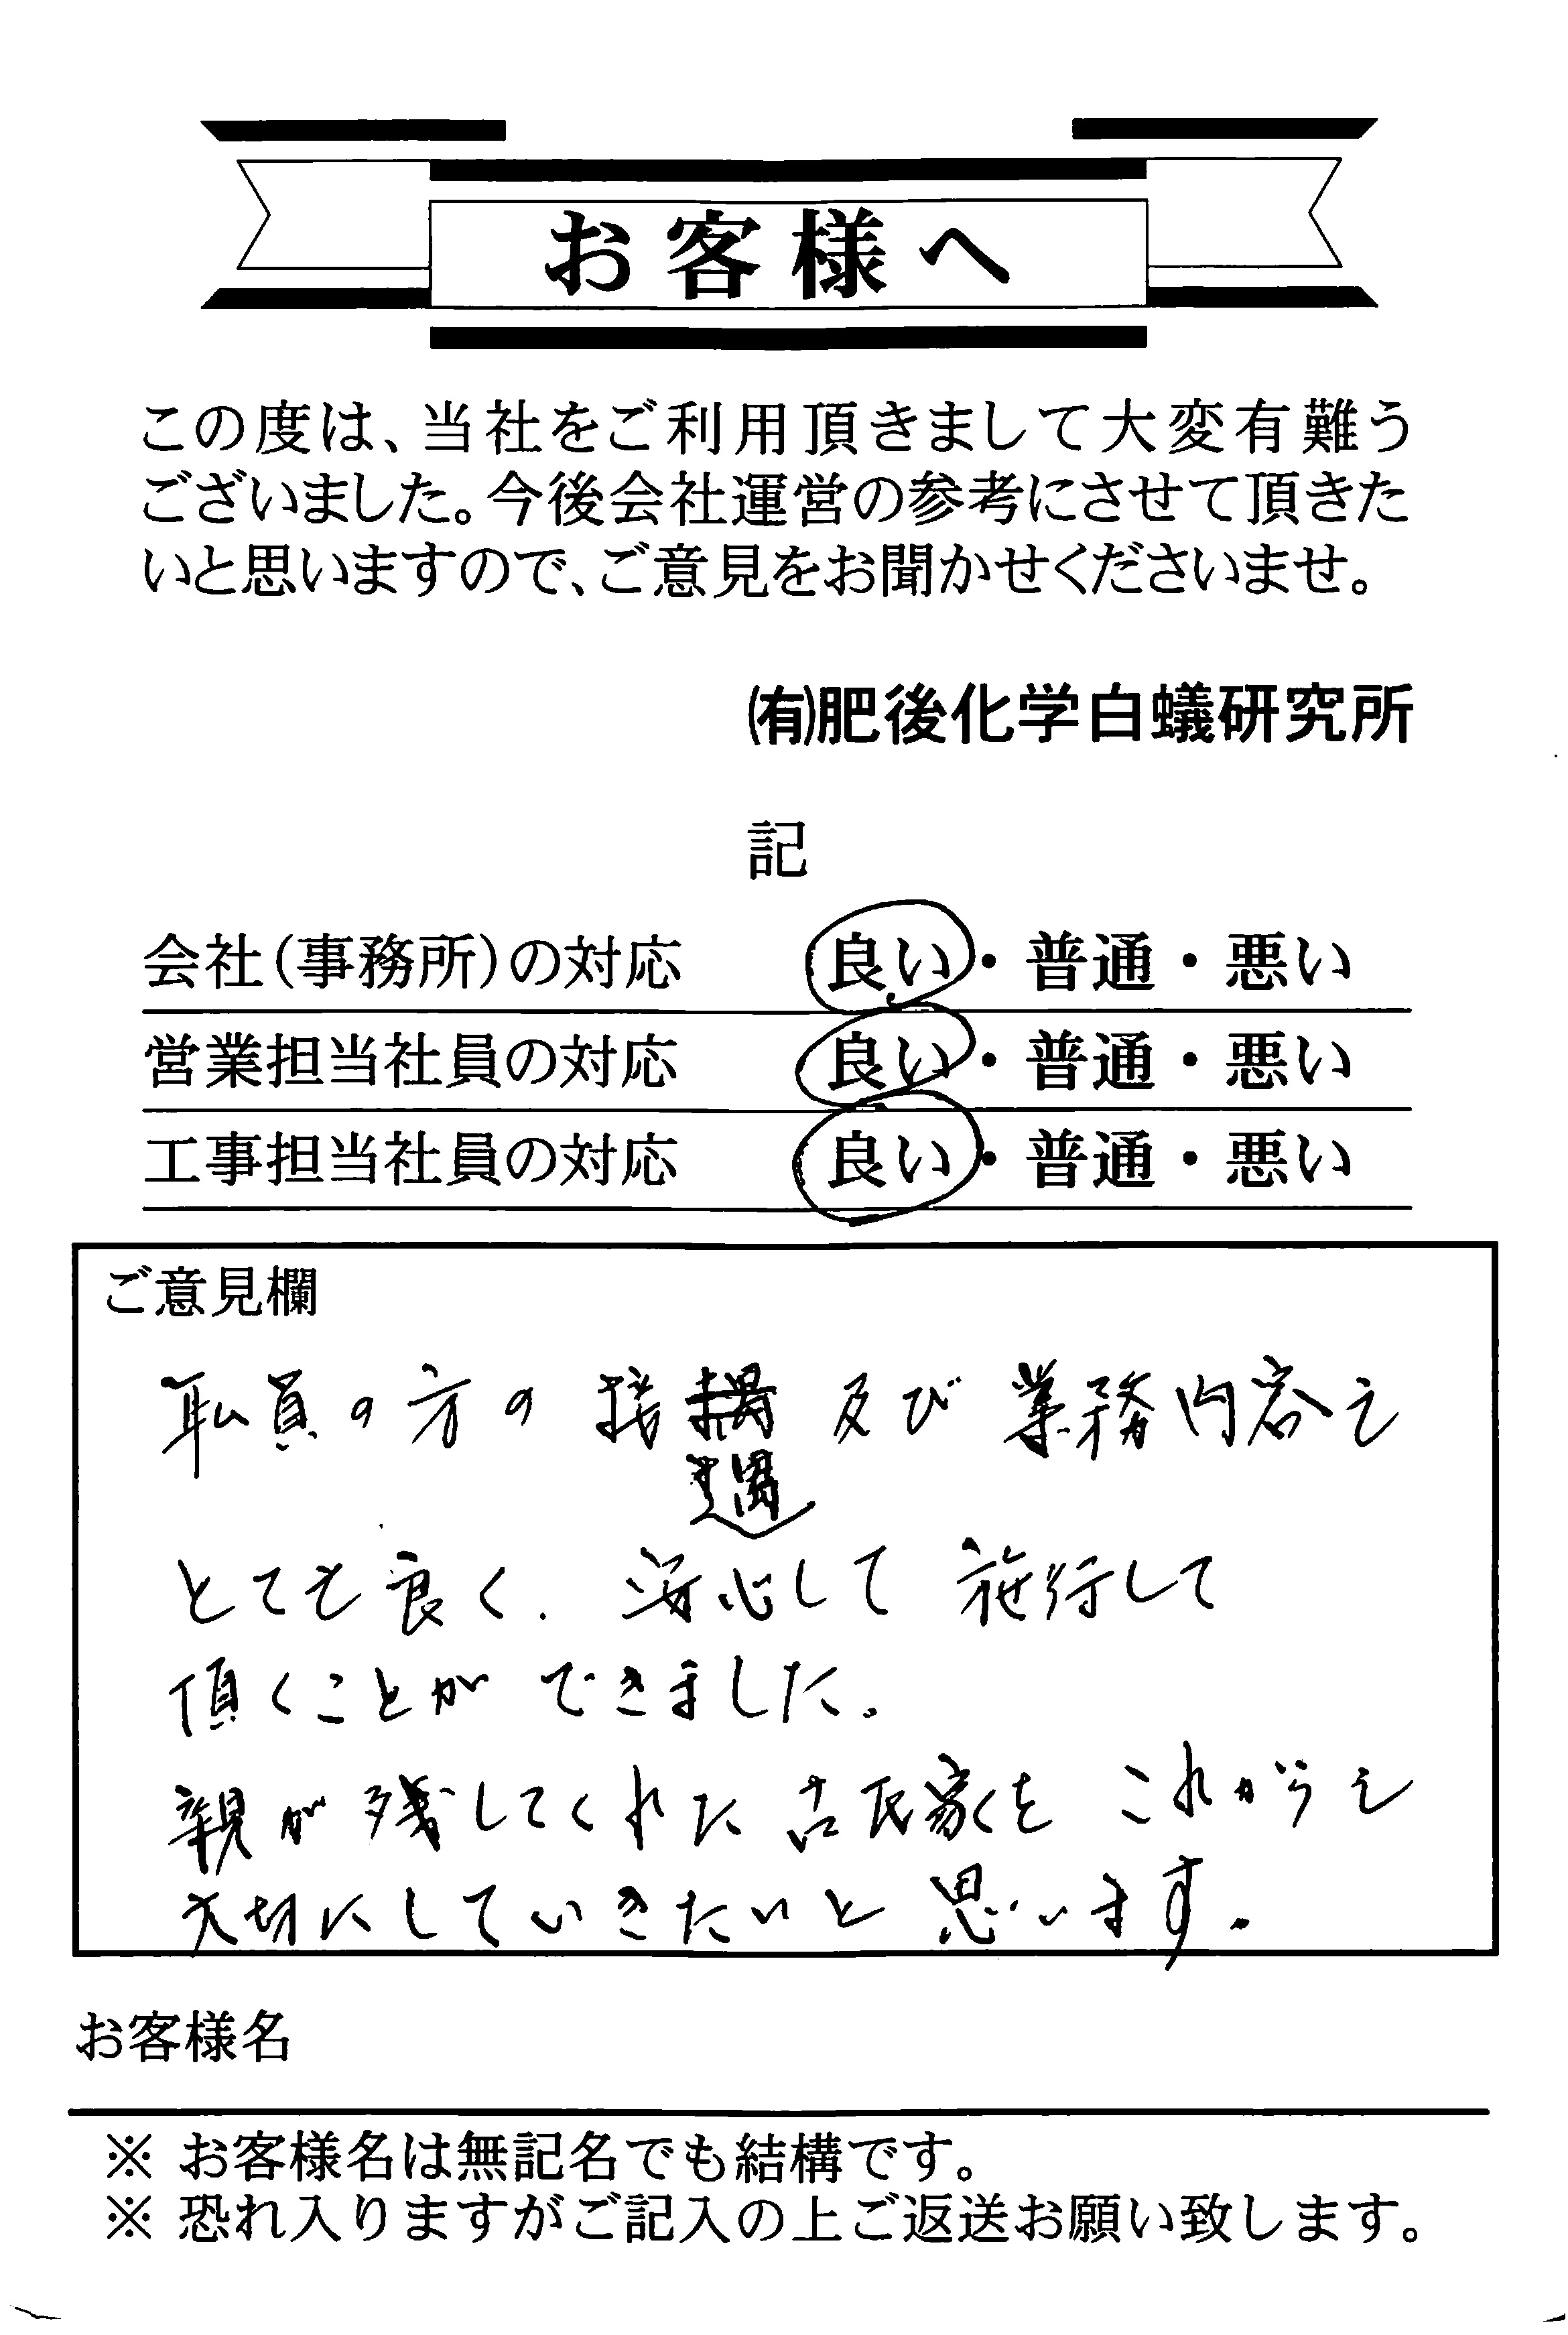 お客様へ
この度は、当社をご利用頂きまして大変有難う
ございました。今後会社運営の参考にさせて頂きた
いと思いますので、ご意見をお聞かせくださいませ。
㈲肥後化学白蟻研究所
記
会社（事務所）の対応 良い・普通・悪い
営業担当社員の対応 良い・普通・悪い
工事担当社員の対応 良い・普通・悪い
ご意見欄
職員の方の接遇及び業務内容も
とても良く、安心して施行して
頂くことができました。
親が残してくれた古民家をこれからも
大切にしていきたいと思います。
お客様名
※ お客様名は無記名でも結構です。
※ 恐れ入りますがご記入の上ご返送お願い致します。